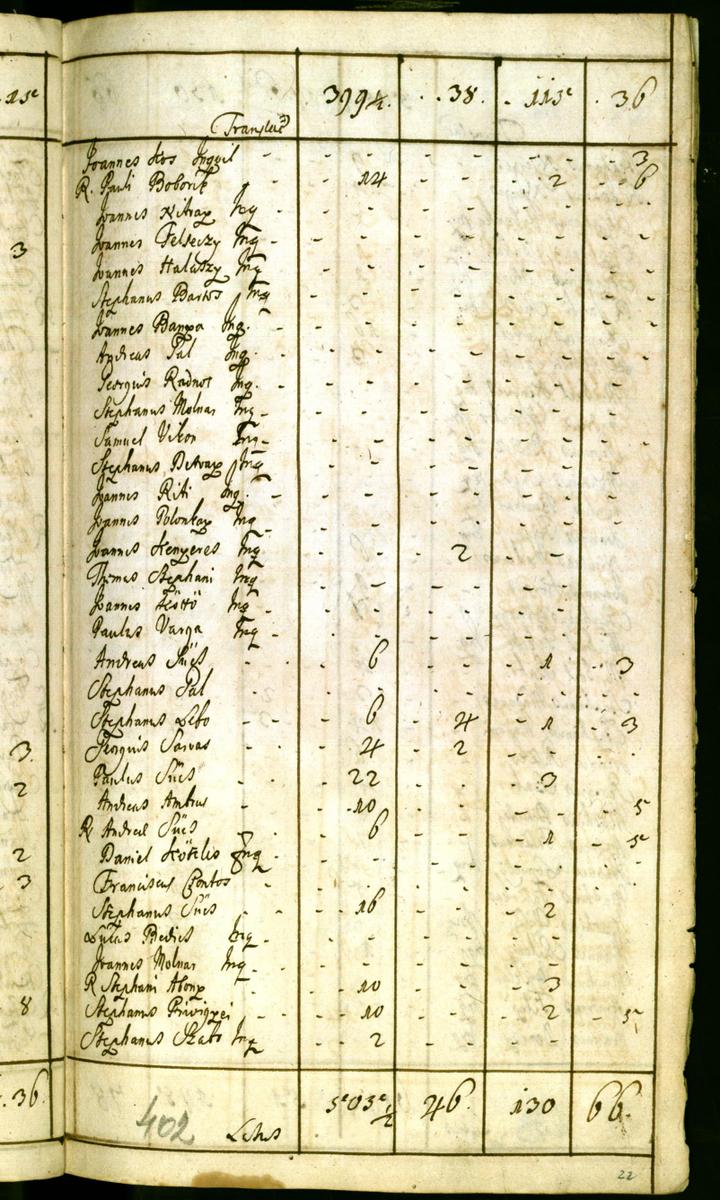 15
3994. 38. 115 36
Joannes Kos Inquil - - - 3
R. Pauli Boborik - 14 - 2 6
Joannes Nitray Inq - - - - -
Joannes Felseczy Inq - - - - -
3
Joannes Halaszy Inq - - - -
Stephanus Bartos Inq - - - -
Joannes Inq. - - - - -
Andreas Pal Inq. - - - -
Georgius Radnot Inq. - - - - -
Stephanus Molnar Inq - - - - -
Samuel Vikon Inq - - - - -
Stephanus Inq - - - -
Joannes Riti Inq. - - - - -
Joannes Polonkay Inq - - - -
Joannes Kenyeres Inq - 2 - -
Thomas Stephani Inq - - - -
Joannes Inq - - - -
Paulus Varga Inq - - - -
Andreas Sües - 6 - 1 3
Stephanus Pal - - - -
Stephanus Lebo - 6 4 1 3
Georgius Sarvas - 4 2 - -
3
Paulus Sües - 22 - 3 -
2
Andreas Ambrus - 10 - - 5
R. Andreæ Sües - 6 - 1 5
Daniel Inq - - - -
2
Franciscus Csontos - - - -
3
Stephanus Sües - 16 - 2 -
Lucas Inq - - - -
Joannes Molnar Inq - - - -
R Stephani - 10 - 3 -
Stephanus Privigyei - 10 - 2 5
8
Stephanus Szabo Inq - 2 - - -
36
402 Latus 46. 130 66.
22